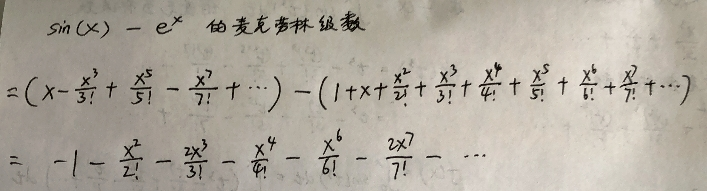 sin(x) - eˣ 的麦克劳林级数
= (x - x³/3! + x⁵/5! - x⁷/7! + ⋯) - (1 + x + x²/2! + x³/3! + x⁴/4! + x⁵/5! + x⁶/6! + x⁷/7! + ⋯)
= -1 - x²/2! - 2x³/3! - x⁴/4! - x⁶/6! - 2x⁷/7! - ⋯